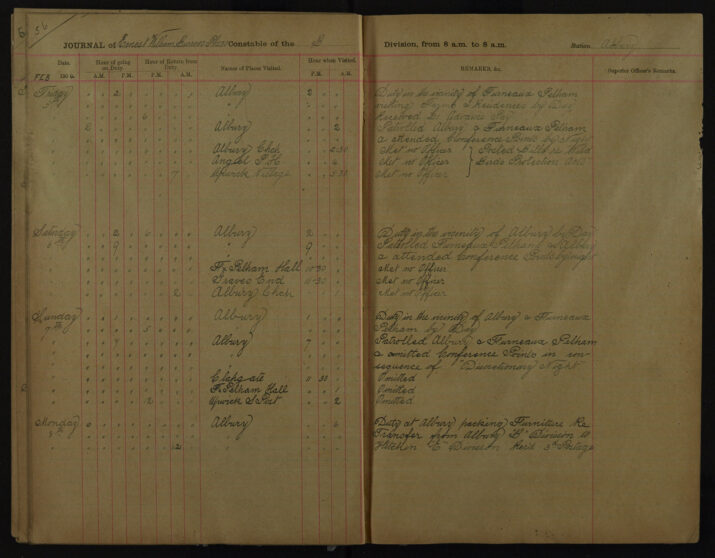 56
JOURNAL of Ernest William Constable of the B
Division, from 8 a.m. to 8 a.m. Station Albury
Date. Hour of going on Duty. Hour of Return from Duty. Names of Places Visited. Hour when Visited. REMARKS, &c. Superior Officer's Remarks.
FEB 190 A.M. P.M. A.M. P.M. P.M. A.M.
Friday 2 Albury 2 Duty in the vicinity of Furneaux Pelham
5th visiting Farms & Residences by Day
6 Received
Albury 2 Patrolled Albury & Furneaux Pelham
& attended Conference Points by Night
Albury Chch 2 30 Met no Officer Posted Wild
Angel P.H. Met no Officer Birds Protection Acts
7 Upwick Village 5 30 Met no Officer
Saturday 2 6 Albury 2 Duty in the vicinity of Albury by Day
9 9 Patrolled Furneaux Pelham & Albury
& attended Conference Points by night
Fx Pelham Hall 10 30 Met no Officer
Graves End 11 30 Met no Officer
2 Albury Chch Met no Officer
Sunday Albury Duty in the vicinity of Albury & Furneaux
7th 5 Pelham by Day
Albury Patrolled Albury & Furneaux Pelham
& omitted Conference Points in con-
sequence of "Discretionary Night"
Clapgate 11 30 Omitted
Fx Pelham Hall Omitted
2 Upwick S Post 2 Omitted
Monday Albury Duty at Albury packing Furniture Re
8th Transfer from Albury "B" Division to
2 Hitchin "C" Division